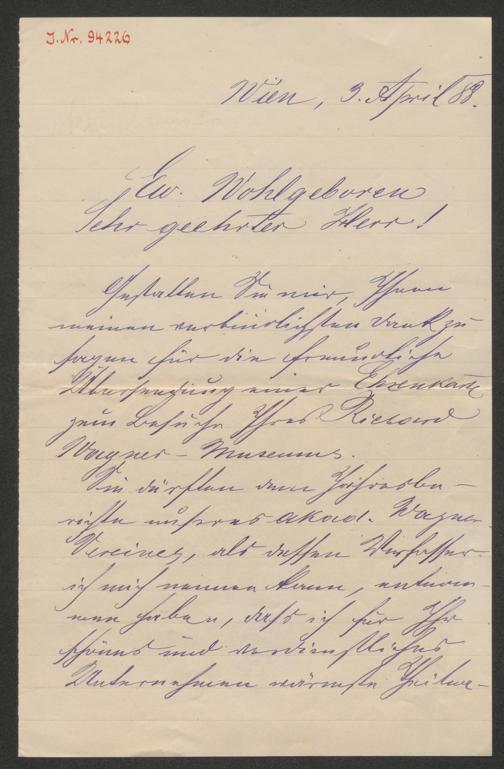 J. Nr. 94226
Wien, 3. April 88.
Ew. Wohlgeboren
Sehr geehrter Herr!
Gestatten Sie mir, Ihnen
meinen verbindlichsten Dank zu
sagen für die freundliche
Übersendung einer Ehrenkarte
zum Besuche Ihres Richard
Wagner-Museums.
Sie dürften dem Jahresbe-
richte unseres akad. Wagner
Vereines, als dessen Verfasser
ich mich nennen kann, entnom-
men haben, daß ich für Ihr
schönes und verdienstliches
Unternehmen wärmste Theilna-